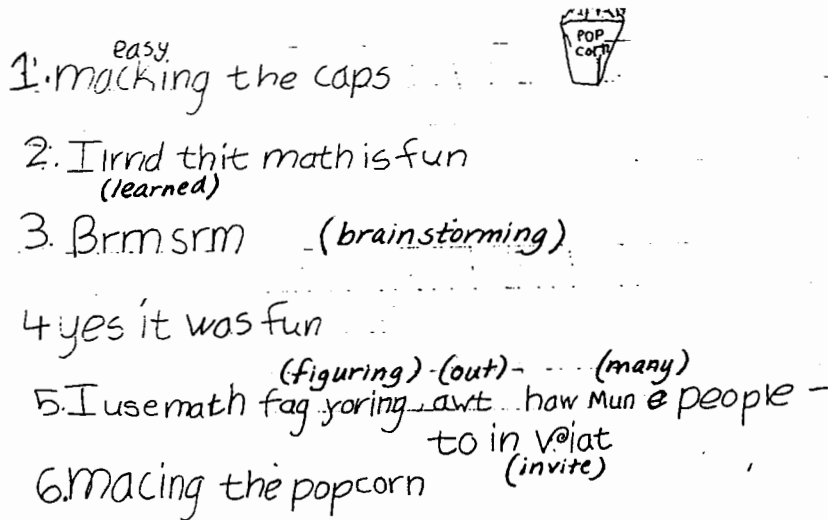 POP
corn
easy
1. macking the caps
2. I lrnd thit math is fun
(learned)
3. Brm srm (brainstorming)
4 yes it was fun
(figuring) (out) (many)
5. I use math fag yoring awt haw mun e people
to in viat
(invite)
6. macing the popcorn